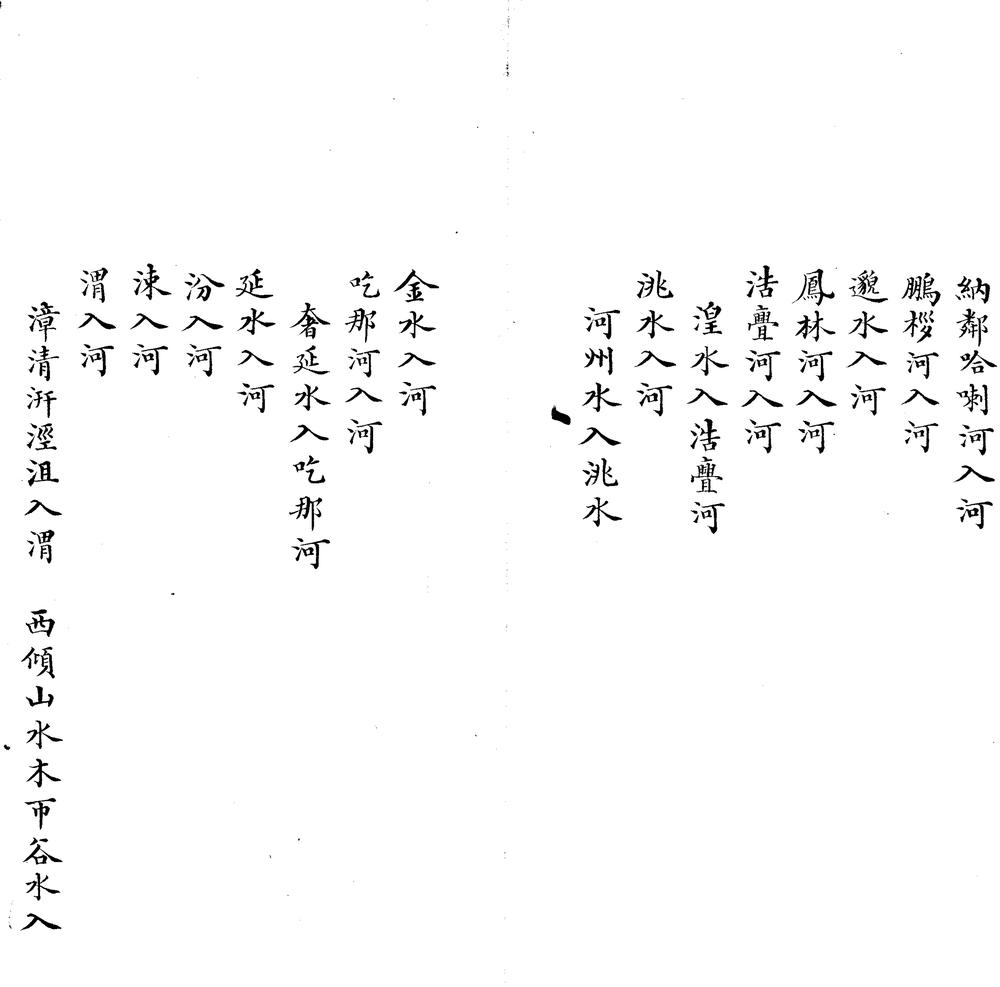 納鄰哈喇河入河
鵬椤河入河
邈水入河
鳳林河入河
浩亹河入河
湟水入浩亹河
洮水入河
河州水入洮水
金水入河
吃那河入河
奢延水入吃那河
延水入河
汾入河
涑入河
渭入河
漳清汧涇沮入渭　西傾山水木帀谷水入